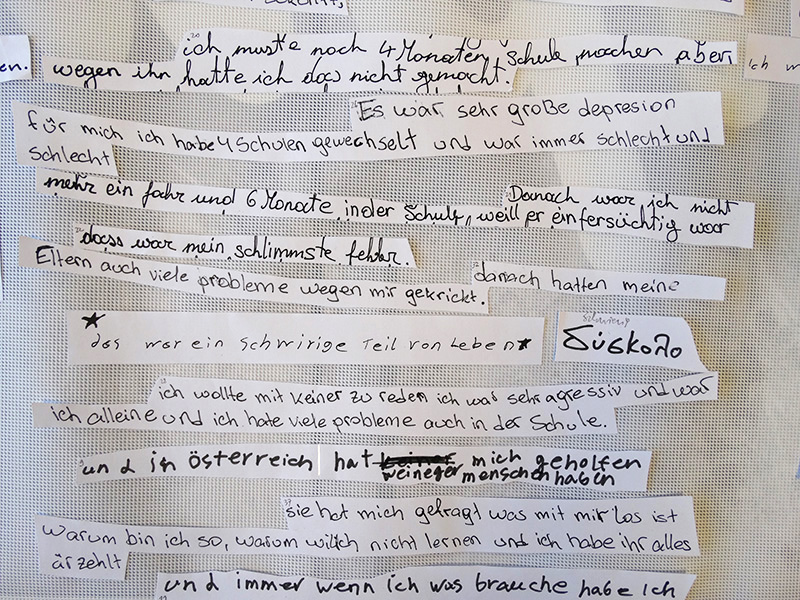 20
ich muste noch 4 Monaten Schule machen aber
en.
wegen ihn hatte ich das nicht gemacht.
Ich w
Es war sehr große depresion
für mich ich habe 4 Schulen gewechselt und war immer schlecht und
schlecht
Danach war ich nicht
mehr ein Jahr und 6 Monate in der Schule, weill er einfersüchtig war
dass war mein schlimmste fehler.
danach hatten meine
Eltern auch viele probleme wegen mir gekrickt.
das war ein schwirige Teil von Leben
schwierig
δύσκολο
ich wollte mit keiner zu reden ich war sehr agressiv und war
ich alleine und ich hate viele probleme auch in der Schule.
und in österreich hat keiner mich geholfen
weineger menschen haben
sie hat mich gefragt was mit mir los ist
warum bin ich so, warum will ich nicht lernen und ich habe ihr alles
ärzehlt
und immer wenn ich was brauche habe ich